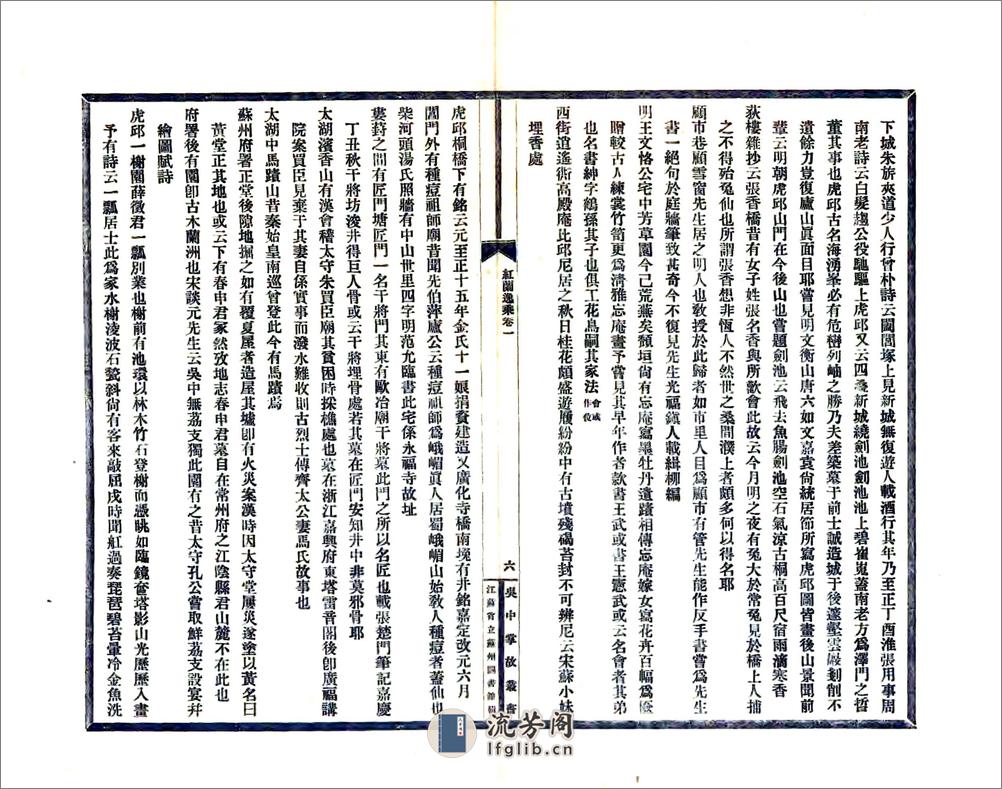 下城朱旂夾道少人行曾朴詩云闔閭塚上見新城無復遊人載酒行其年乃至正丁酉淮張用事周
南老詩云白髮趨公役馳驅上虎邱又云四墨新城繞劍池劍池池上碧崔嵬蓋南老方爲澤門之晳
董其事也虎邱古名海湧峯必有危巒列岫之勝乃夫差築墓于前士誠造城于後邃壑雲巖剗削不
遺餘力豈復廬山眞面目耶嘗見明文衡山唐六如文嘉袁尙統居節所寫虎邱圖皆畫後山景聞前
輩云明朝虎邱山門在今後山也嘗題劍池云飛去魚腸劍池空石氣涼古桐高百尺宿雨滴寒香
荻樓雜抄云張香橋昔有女子姓張名香與所歡會此故云今月明之夜有兔大於常兔見於橋上人捕
之不得殆兔仙也所謂張香想非恆人不然世之桑間濮上者頗多何以得名耶
顧市巷顧雪窗先生居之明人也敎授於此歸者如市里人目爲顧市有管先生能作反手書嘗爲先生
書一絕句於庭牆筆致甚奇今不復見先生光福鎭人載緝柳編
明王文恪公宅中芳草園今已荒蕪矣頹垣尙有忘庵寫墨牡丹遺蹟相傳忘庵嫁女寫花卉百幅爲
贈較古人練裳竹笥更爲淸雅忘庵畫予嘗見其早年作者款書王武或書王憲武或云名會者其弟
也名書紳字鶴孫其子也俱工花鳥嗣其家法會或作位
西街道遙衖高殿庵比邱尼居之秋日桂花頗盛遊履紛紛中有古墳殘碣苔封不可辨尼云宋蘇小妹
埋香處
紅蘭逸乘卷一
六
吳中掌故叢書
江蘇省立蘇州圖書館輯
虎邱桐橋下有銘云元至正十五年金氏十一娘捐資建造又廣化寺橋南堍有井銘嘉定改元六月
閶門外有種痘祖師廟昔聞先伯萍廬公云種痘祖師爲峨嵋眞人居蜀峨嵋山始敎人種痘者蓋仙也
柴河頭湯氏照牆有中山世里四字明范允臨書此宅係永福寺故址
婁葑之間有匠門塘匠門一名干將門其東有歐冶廟干將墓此門之所以名匠也載張楚門筆記嘉慶
丁丑秋干將坊浚井得巨人骨或云干將埋骨處若其墓在匠門安知井中非莫邪骨耶
太湖濱香山有漢會稽太守朱買臣廟其貧困時採樵處也墓在浙江嘉興府東塔雷音閣後卽廣福講
院案買臣見棄于其妻自係實事而潑水難收則古烈士傳齊太公妻馬氏故事也
太湖中馬蹟山昔秦始皇南巡曾登此今有馬蹟焉
蘇州府署正堂後隙地掘之如有覆夏屋者造屋其墟卽有火災案漢時因太守堂屢災遂塗以黃名曰
黃堂正其地也或云下有春申君冢然攷地志春申君墓自在常州府之江陰縣君山麓不在此也
府署後有園卽古木蘭洲也宋談元先生云吳中無荔支獨此園有之昔太守孔公嘗取鮮荔支設宴幷
繪圖賦詩
虎邱一榭園薛徵君一瓢別業也榭前有池環以林木竹石登榭而憑眺如臨鏡奩塔影山光歷歷入畫
予有詩云一瓢居士此爲家水榭淩波石甃斜尙有客來敲屈戍時聞舡過奏琵琶碧苔暈冷金魚洗
流芳阁
lfglib.cn